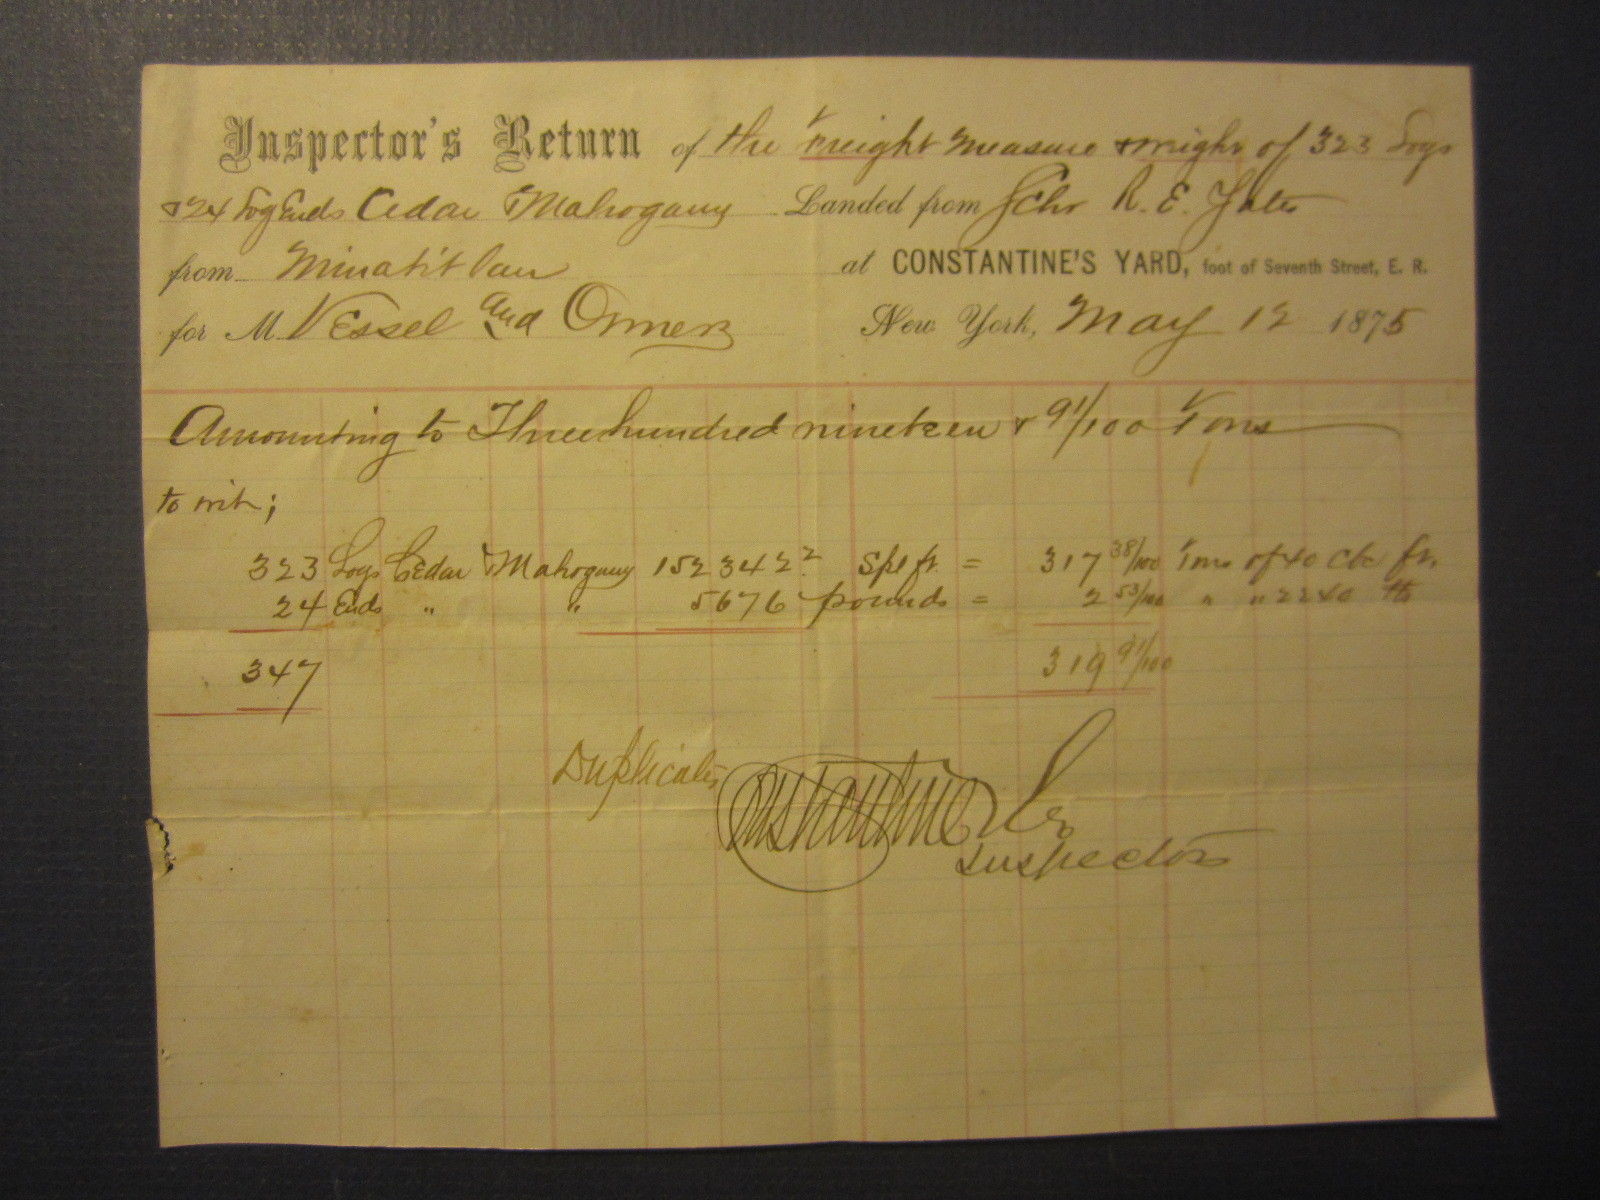 Inspector's Return of the Freight Measure & weight of 323 Logs
& 24 Log Ends Cedar & Mahogany Landed from Schr R. E. Yates
from Minatitlan at CONSTANTINE'S YARD, foot of Seventh Street, E. R.
for M Vessel and Owners New York, May 12 1875
Amounting to Three hundred nineteen & 91/100 Tons
to wit;
323 Logs Cedar & Mahogany 152342 2 Spl ft = 317 38/100 Tons of 40 Cbc ft.
24 Ends " " 5676 pounds = 2 53/100 " " 2240 lbs
347 319 91/100
Duplicate
Constantine & Co
Inspectors